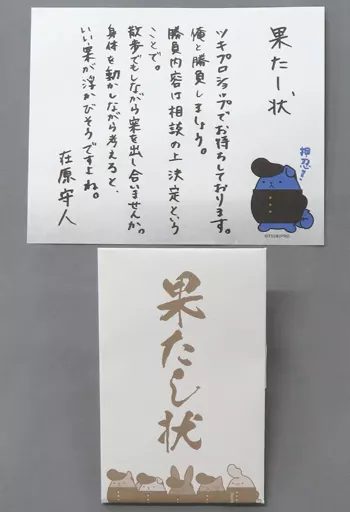 果たし状
ツキプロショップでお待ちしております。
俺と勝負しましょう。
勝負内容は相談の上決定という
ことで。
散歩でもしながら案を出し合いませんか。
身体を動かしながら考えると、
いい案が浮かびそうですよね。
在原守人
押忍!
果たし状